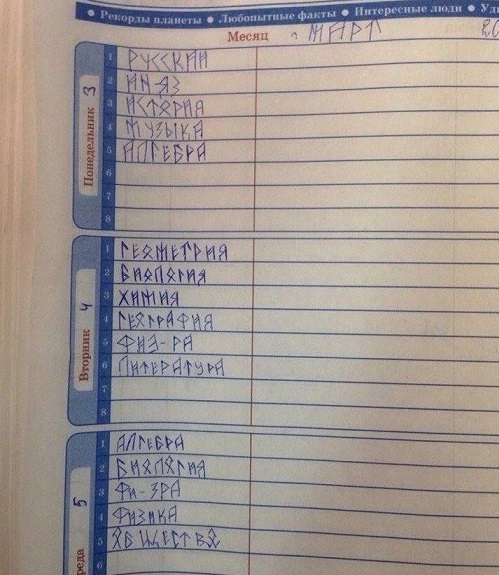 • Рекорды планеты • Любопытные факты • Интересные люди •
Месяц МАРТ
Понедельник 3
1 РУССКИЙ
2 ИН-ЯЗ
3 ИСТОРИЯ
4 МУЗЫКА
5 АЛГЕБРА
6
7
8
Вторник 4
1 ГЕОМЕТРИЯ
2 БИОЛОГИЯ
3 ХИМИЯ
4 ГЕОГРАФИЯ
5 ФИЗ-РА
6 ЛИТЕРАТУРА
7
8
реда 5
1 АЛГЕБРА
2 БИОЛОГИЯ
3 ФИ-ЗРА
4 ФИЗИКА
5 ОБЩЕСТВО
6